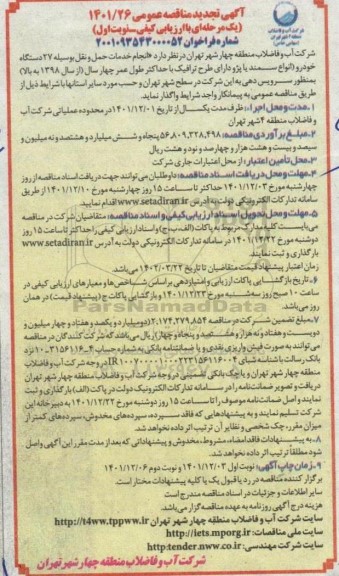 آگهی تجدید مناقصه عمومی ۱۴۰۱/۲۶
(یک مرحله‌ای با ارزیابی کیفی-نوبت اول)
شماره فراخوان ۲۰۰۱۰۹۳۵۴۳۰۰۰۰۵۲
شرکت آب و فاضلاب منطقه چهار شهر تهران در نظر دارد «انجام خدمات حمل و نقل بوسیله ۲۷ دستگاه
خودرو (انواع سمند یا پژو دارای طرح ترافیک با حداکثر طول عمر چهار سال (از سال ۱۳۹۸ به بالا)
بمنظور سرویس دهی به این شرکت در سطح شهر تهران و حسب مورد سایر استانها با شرایط ذیل از
طریق مناقصه عمومی به پیمانکار واجد شرایط واگذار نماید.
۱.مدت و محل اجرا: ظرف مدت یکسال از تاریخ ۱۴۰۱/۱۲/۰۱ در محدوده عملیاتی شرکت آب
و فاضلاب منطقه ۴ شهر تهران
۲.مبلغ برآوردی مناقصه: ۵۶,۸۰۹,۳۲۸,۴۹۸ پنجاه و شش میلیارد و هشتصد و نه میلیون و
سیصد و بیست و هشت هزار و چهارصد و نود و هشت ریال
۳.محل تامین اعتبار: از محل اعتبارات جاری شرکت
۴.مهلت و محل دریافت اسناد مناقصه: داوطلبان می‌توانند جهت دریافت اسناد مناقصه از روز
چهارشنبه مورخ ۱۴۰۱/۱۲/۰۳ حداکثر تا ساعت ۱۵ روز چهارشنبه مورخ ۱۴۰۱/۱۲/۱۰ از طریق
سامانه تدارکات الکترونیکی دولت به آدرس www.setadiran.ir اقدام نمایند.
۵.مهلت و محل تحویل اسناد ارزیابی کیفی و اسناد مناقصه: متقاضیان شرکت در مناقصه
می‌بایست کلیه مدارک مربوط به پاکات (الف،ب،ج) و اسناد ارزیابی کیفی را حداکثر تا ساعت ۱۵ روز
دوشنبه مورخ ۱۴۰۱/۱۲/۲۲ در سامانه تدارکات الکترونیکی دولت به آدرس www.setadiran.ir
بارگذاری و ثبت نمایند
زمان اعتبار پیشنهاد قیمت متقاضیان تا تاریخ ۱۴۰۲/۰۳/۲۲ می‌باشد.
۶.تاریخ بازگشایی پاکات ارزیابی و امتیازدهی براساس شاخص‌ها و معیارهای ارزیابی کیفی در
ساعت ۱۰ صبح روز سه‌شنبه مورخ ۱۴۰۱/۱۲/۲۳ و بازگشایی پاکات ج (پیشنهاد قیمت) در همان
روز می‌باشد.
۷.مبلغ تضمین شرکت در مناقصه ۲,۱۷۴,۲۷۹,۸۵۴ دو میلیارد و یکصد و هفتاد و چهار میلیون و
دویست و هفتاد و نه هزار و هشتصد و پنجاه و چهار) ریال می‌باشد که شرکت کنندگان در مناقصه
می‌توانند به صورت فیش واریزی نقدی و یا ضمانتنامه بانکی به شماره حساب
بانک رسالت با شناسه شبای
منطقه چهار شهر تهران و یا چک بانکی تضمینی در وجه شرکت آب و فاضلاب منطقه چهار شهر تهران
دریافت و تصویر ضمانت نامه را در سامانه تدارکات الکترونیک دولت در پاکت (الف) بارگذاری و ثبت
نمایند و اصل ضمانت نامه موصوف را تا ساعت ۱۵ روز دوشنبه مورخ ۱۴۰۱/۱۲/۲۲ به دبیرخانه این
شرکت تسلیم نمایند و به پیشنهادهایی که فاقد سپرده، سپرده‌های مخدوش، سپرده‌های کمتر از
میزان مقرر، چک شخصی و نظایر آن ترتیب اثر داده نخواهد شد.
۸.به پیشنهادات فاقد امضاء، مشروط، مخدوش و پیشنهاداتی که بعد از مدت مقرر این آگهی واصل
شود مطلقا ترتیب اثر داده نخواهد شد.
۹.زمان چاپ آگهی: نوبت اول ۱۴۰۱/۱۲/۰۳ و نوبت دوم ۱۴۰۱/۱۲/۰۶
برگزار کننده مناقصه در رد یا قبول یک یا کلیه پیشنهادات مختار است.
سایر اطلاعات و جزئیات در اسناد مناقصه مندرج است
هزینه درج آگهی روزنامه به عهده مناقصه گزار می‌باشد.
سایت شرکت آب و فاضلاب منطقه چهار شهر تهران http://t4ww.tppww.ir
سایت ملی مناقصات: http://iets.mporg.ir
سایت شرکت مهندسی: http:tender.nww.co.ir
شرکت آب و فاضلاب منطقه چهار شهر تهران
ParsNamadData